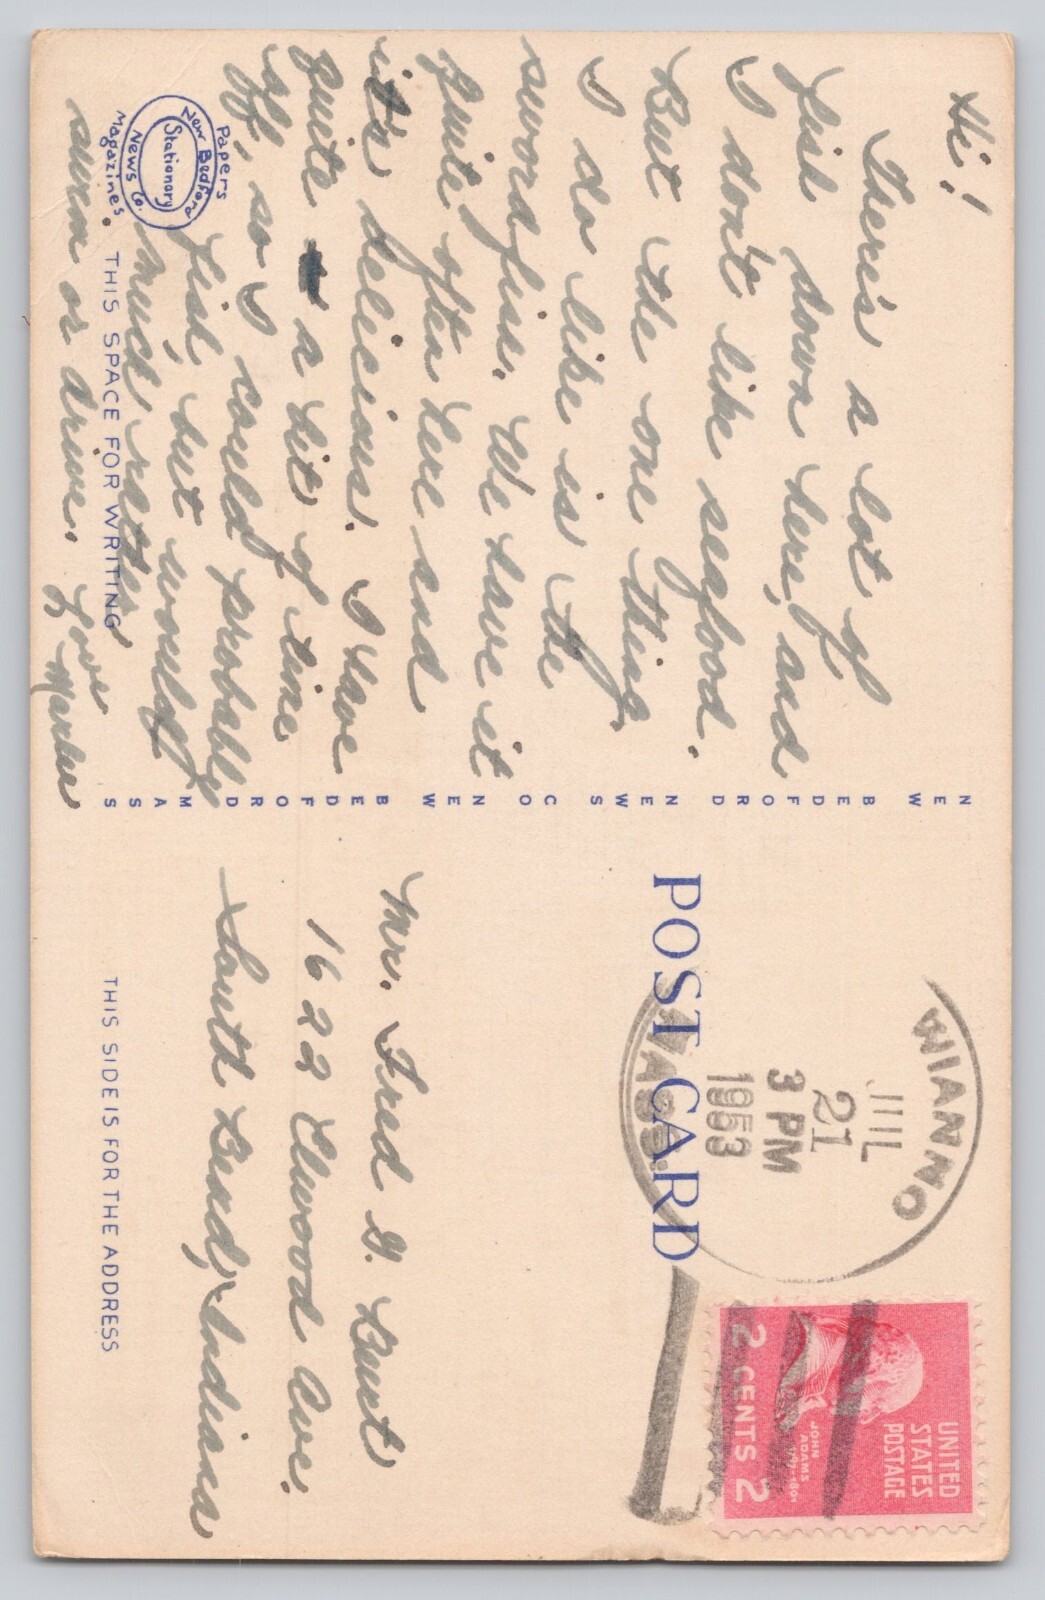 Hi!
There's a lot of
fish down here, and
I don't like seafood.
But the one thing
I do like is the
swordfish. We have it
quite often here and
it's delicious. I have
quite a bit of time
off, so I could probably
fish, but would
much rather
swim or drive.
Love
Papers
New Bedford
Stationary
News Co.
Magazines
THIS SPACE FOR WRITING
NEW BEDFORD NEWS CO NEW BEDFORD MASS
POST CARD
WIANNO
JUL
21
3 PM
1953
MASS.
UNITED
STATES
POSTAGE
JOHN
ADAMS
1797-1801
2 CENTS 2
Mr. Fred G. Burt
1622 Elwood Ave.
South Bend, Indiana
THIS SIDE IS FOR THE ADDRESS